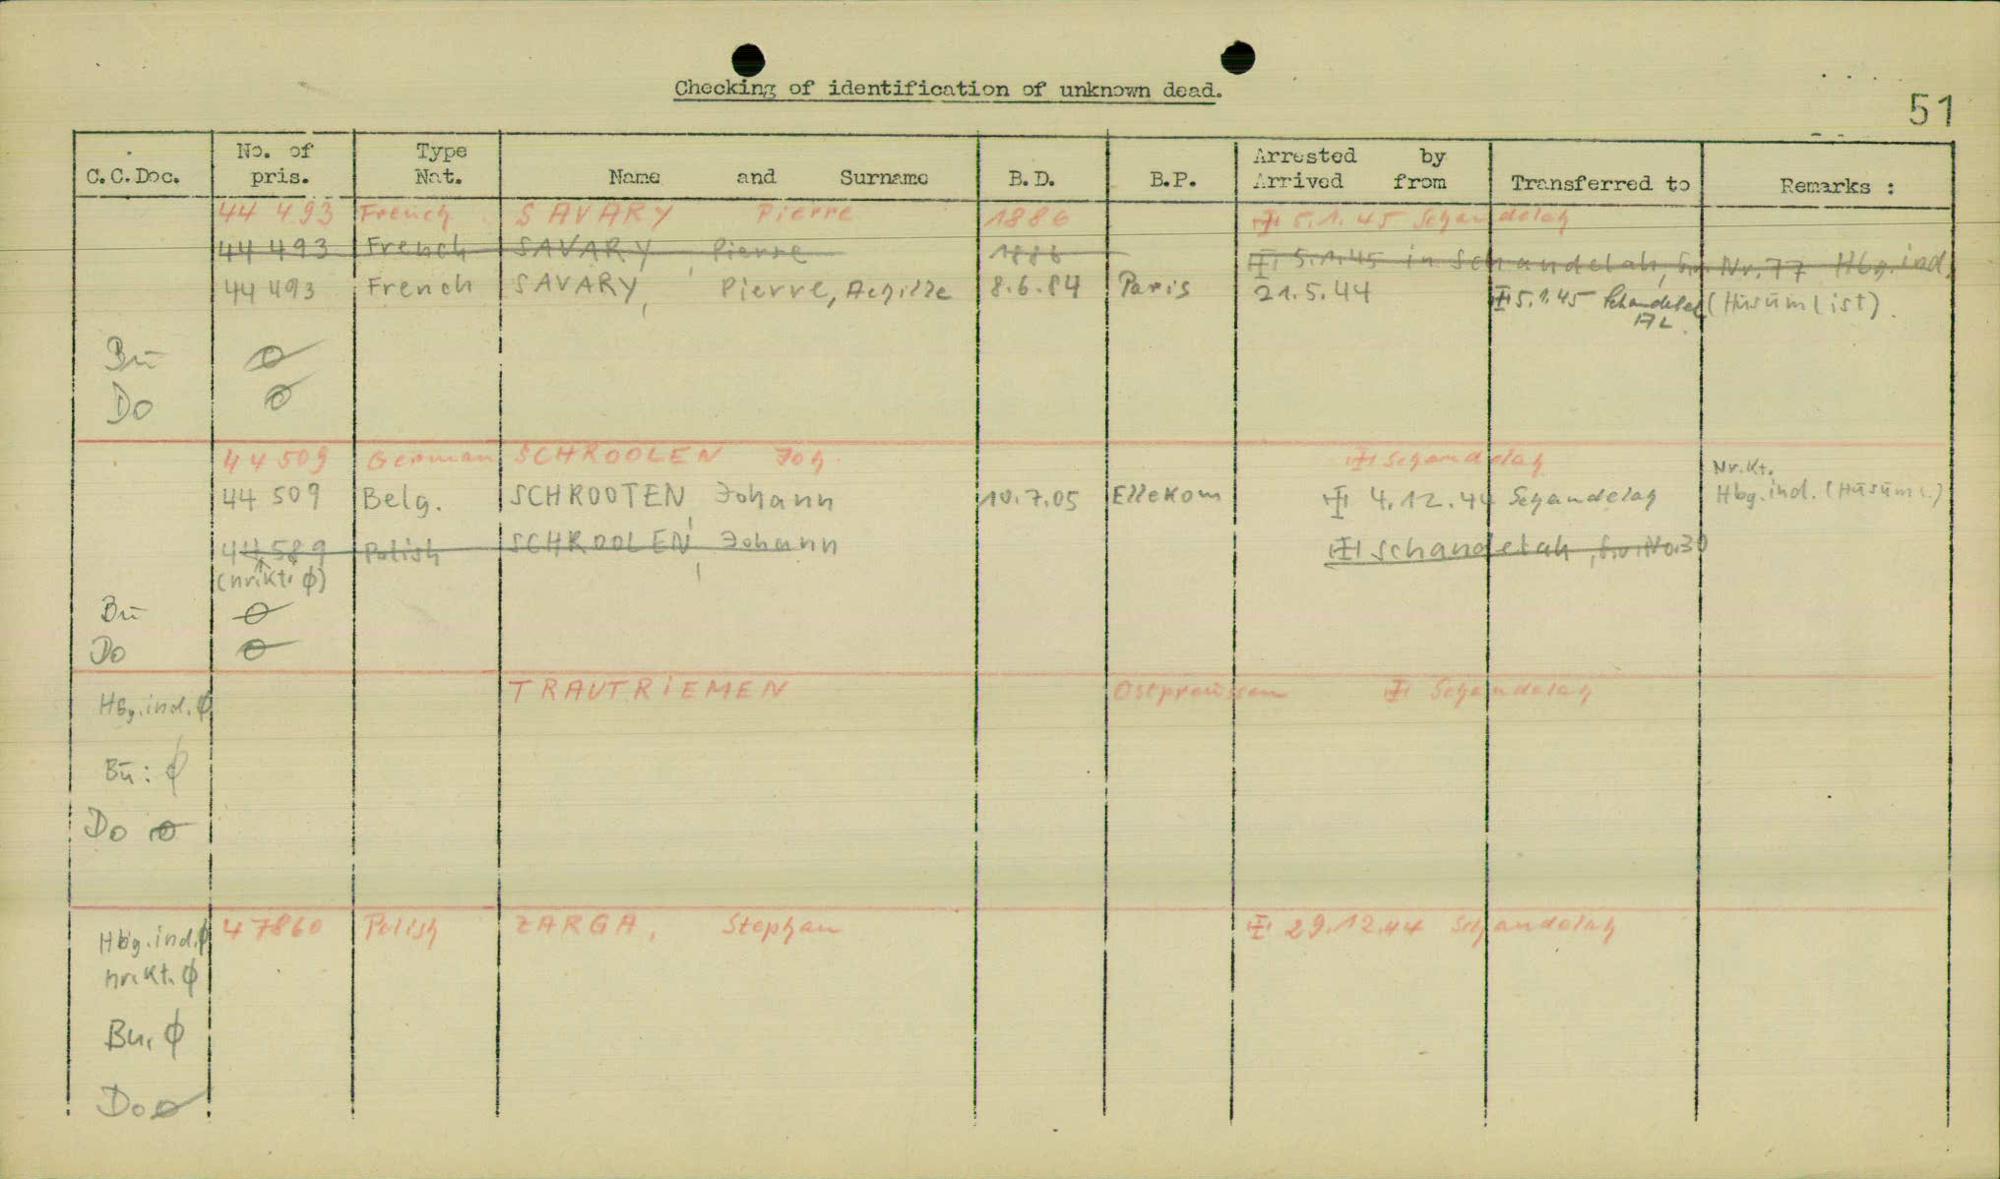 Checking of identification of unknown dead.
51
C.C.Doc. No. of pris. Type Nat. Name and Surname B.D. B.P. Arrested by Arrived from Transferred to Remarks :
44 493 French SAVARY Pierre 1886 5.1.45 Schandelah
44 493 French SAVARY, Pierre 1886 5.1.45 in Schandelah, Nr. 77 Hbg. ind.
44 493 French SAVARY, Pierre, Achille 8.6.84 Paris 21.5.44 5.1.45 Schandelah (Husum list).
AL
Bu ø
Do ø
44 509 German SCHROOLEN Joh. Schandelah Nr.Kt.
44 509 Belg. SCHROOTEN, Johann 10.7.05 Ellekom 4.12.44 Schandelah Hbg.ind. (Husum L.)
44 589 Polish SCHROOLEN, Johann Schandelah, No.30
(nr.kt. ø)
Bu ø
Do ø
TRAUTRIEMEN Ostpreussen Schandelah
Hbg.ind. ø
Bu: ø
Do ø
Hbg.ind. ø 47860 Polish ZARGA, Stephan 29.12.44 Schandelah
nr.kt. ø
Bu. ø
Do ø